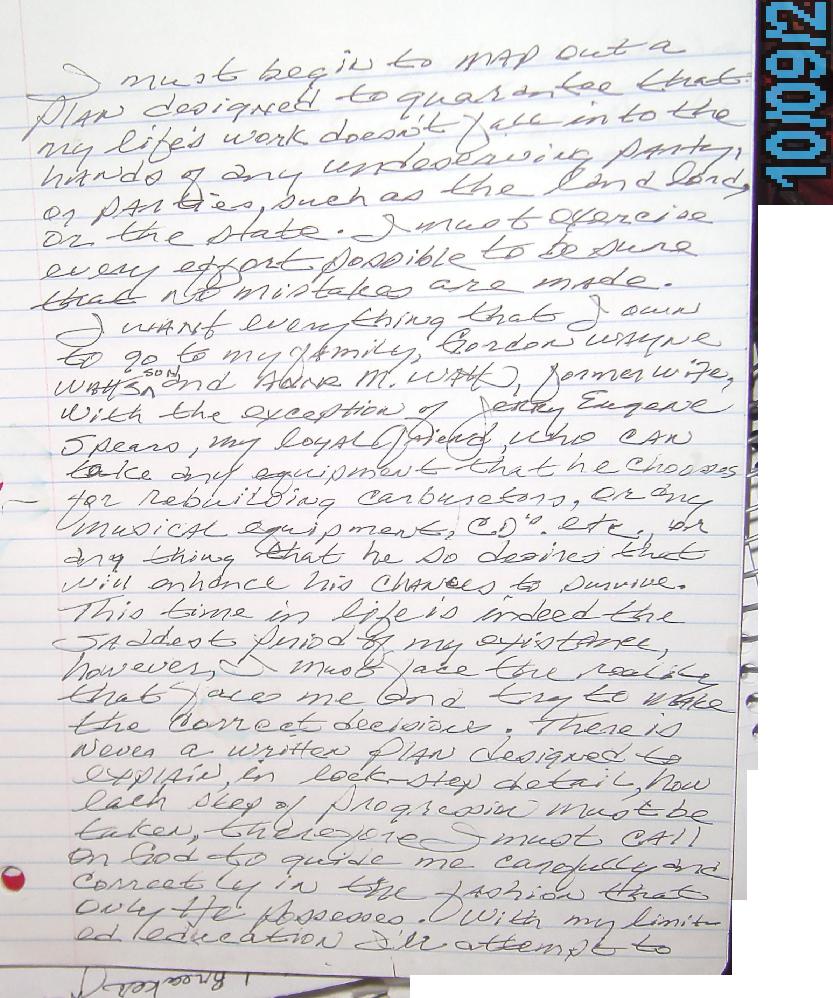 I must begin to MAP out a
PLAN designed to quarantee that
my life's work doesn't fall into the
hands of any undeserving party,
or parties, such as the land lord,
or the state. I must exercise
every effort possible to be sure
that no mistakes are made.
I want everything that I own
to go to my family, Gordon WAYNE
WATTS "SON" and Anna M. WATTS, former wife,
with the exception of Jerry Eugene
Spears, my loyal friend, who CAN
take any equipment that he chooses
for rebuilding carburetors, or any
musical equipment, C.D's. etc., or
any thing that he so desires that
will enhance his chances to survive.
This time in life is indeed the
SADDest period of my existance,
however, I must face the reality
that faces me and try to make
the correct decisions. There is
Never a written PLAN designed to
explain, in lock-step detail, how
each step of progression must be
taken, therefore I must CALL
on God to guide me carefully and
correctly in the fashion that
only He possesses. With my limit-
ed education I'll attempt to
Breaker
10/09/2